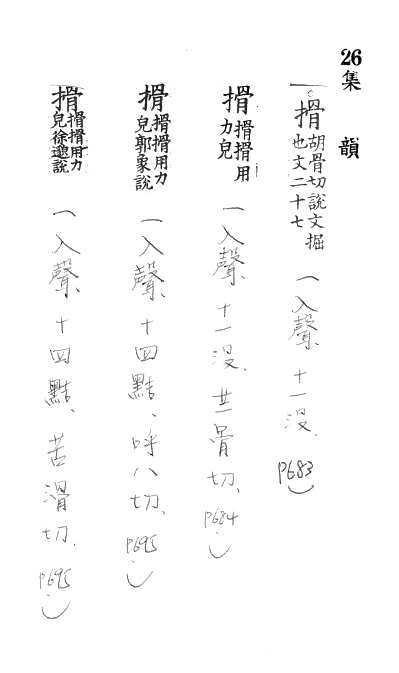 26集 韻
搰 胡骨切說文掘
也文二十七
一入聲、十一没、P683)
搰 搰搰用
力皃
一入聲、十一没、骨切、P684)
搰 搰搰用力
皃郭象說
一入聲、十四黠、呼八切、P695)
搰 搰搰用力
皃徐邈說
一入聲、十四黠、苦滑切、P695)